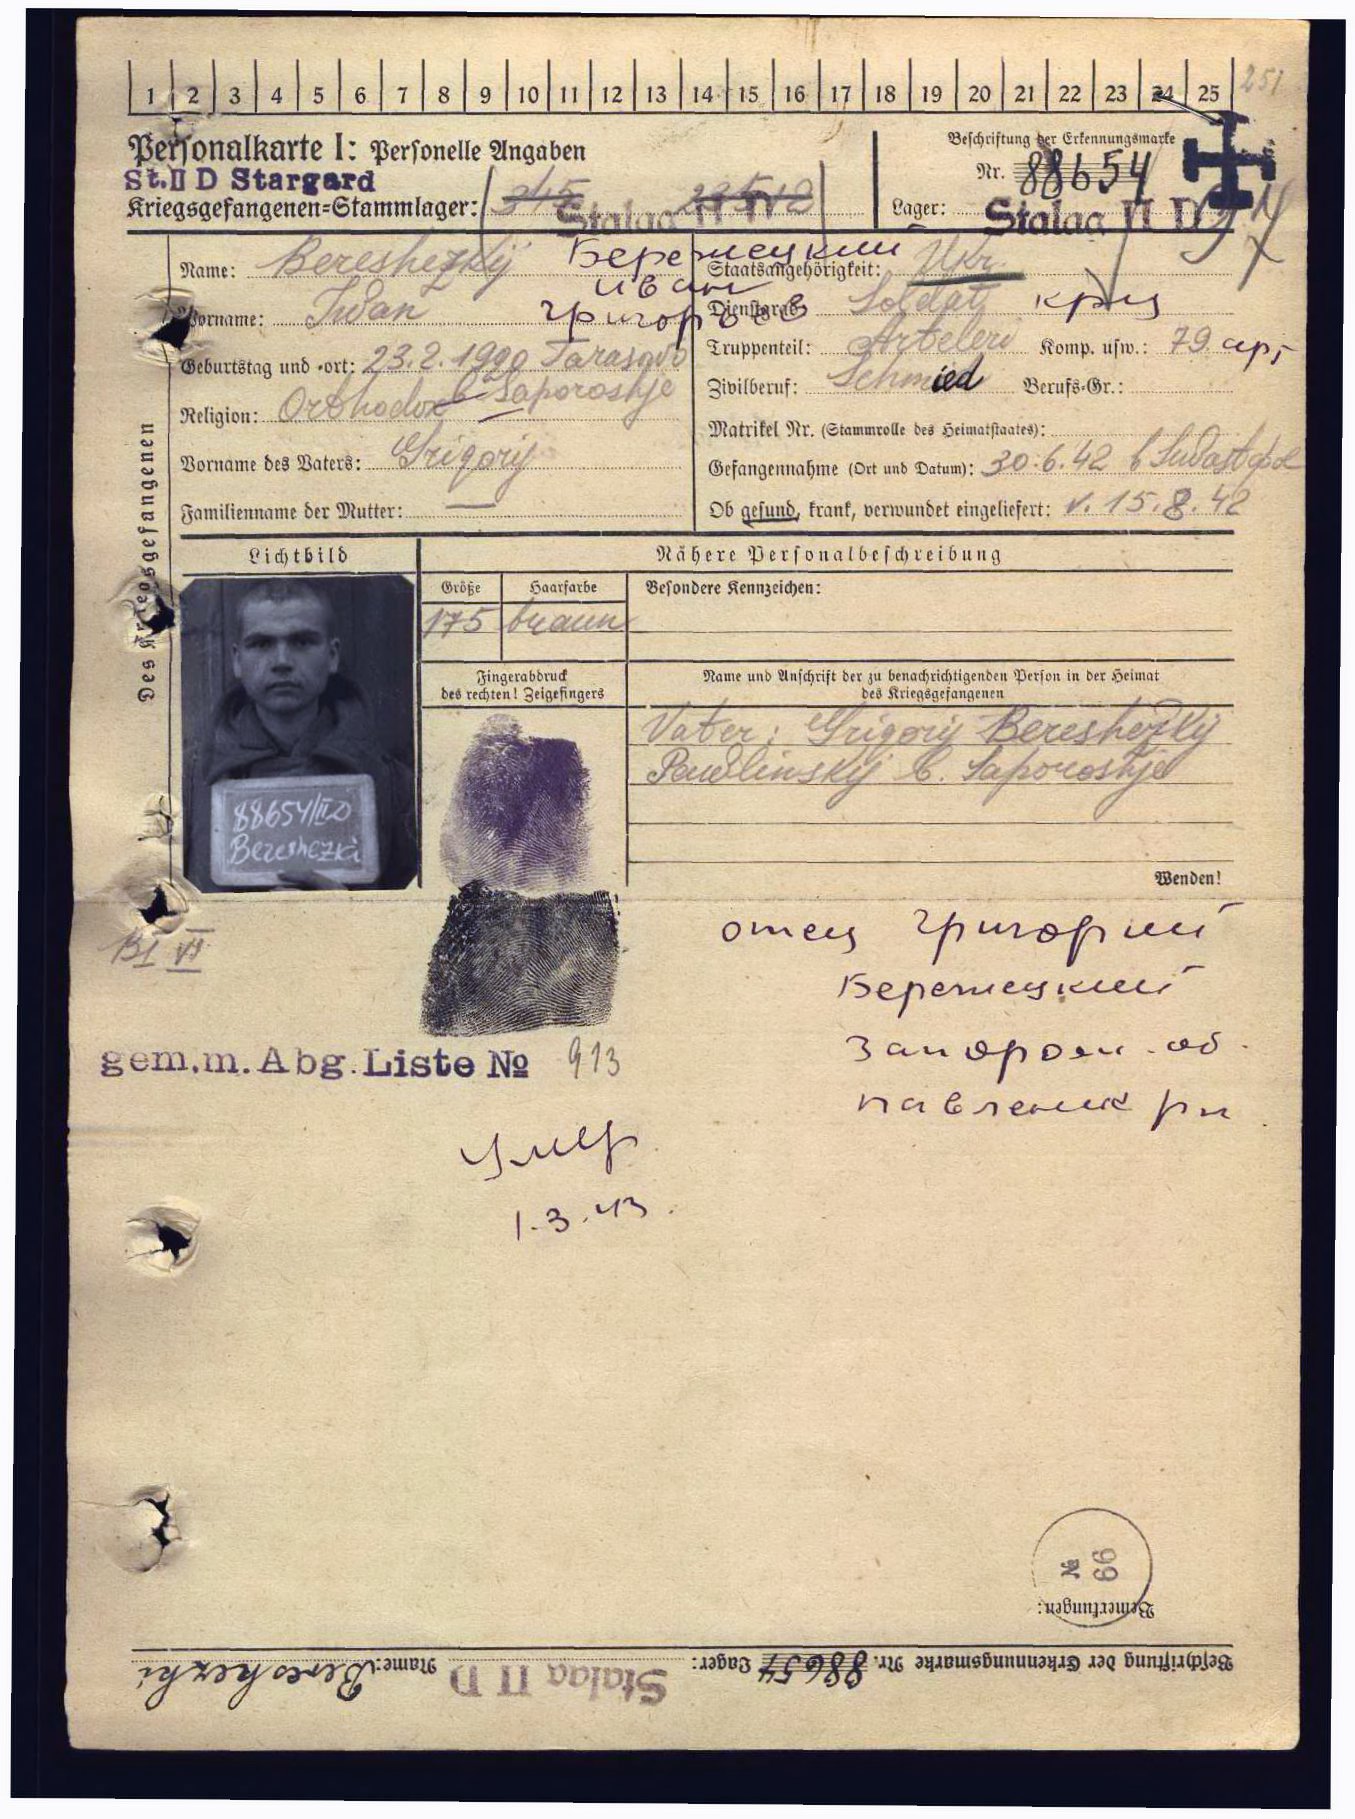 1 2 3 4 5 6 7 8 9 10 11 12 13 14 15 16 17 18 19 20 21 22 23 24 25
251
Personalkarte I: Personelle Angaben
St.II D Stargard
Kriegsgefangenen=Stammlager:
Stalag II D
Beschriftung der Erkennungsmarke
Nr. 88654
Lager: Stalag II D
Des Kriegsgefangenen
Name: Bereshezkij
Бережецкий
Vorname: Iwan
иван
григорьев
Geburtstag und -ort: 23.2.1920 Tarasowo
Religion: Orthodox b Saporoshje
Vorname des Vaters: Grigorij
Familienname der Mutter: —
Staatsangehörigkeit: Ukr.
Dienstgrad: Soldat крц
Truppenteil: Arteleri Komp. usw.: 79 арт
Zivilberuf: Schmied Berufs-Gr.:
Matrikel Nr. (Stammrolle des Heimatstaates):
Gefangennahme (Ort und Datum): 30.6.42 b Sewastopol
Ob gesund, krank, verwundet eingeliefert: v. 15.8.42
Lichtbild
Nähere Personalbeschreibung
Größe
Haarfarbe
Besondere Kennzeichen:
175
braun
Fingerabdruck
des rechten! Zeigefingers
Name und Anschrift der zu benachrichtigenden Person in der Heimat
des Kriegsgefangenen
Vater: Grigorij Bereshezkij
Pawlinskij b. Saporoshje
88654/IID
Bereshezki
Wenden!
отец Григорий
Бережецкий
Запорож. об.
павленик рн
gem.m.Abg.Liste № 913
умер
1.3.43.
№ 66
Bemerkungen:
Beschriftung der Erkennungsmarke Nr. 88654 Lager: Stalag II D Name: Bereshezki